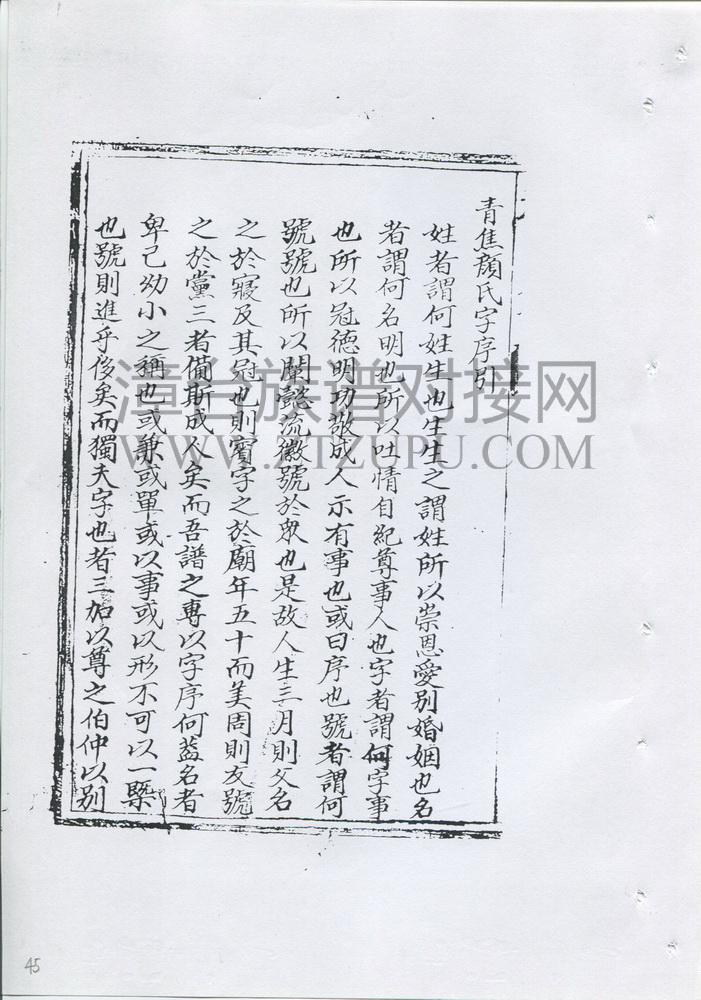 青焦顔氏字序引
姓者謂何姓生也生生之謂姓所以崇恩愛別婚姻也名
者謂何名明也所以吐情自紀尊事人也字者謂何字事
也所以冠德明功敬成人示有事也或曰序也號者謂何
號號也所以闡懿流徽號於衆也是故人生三月則父名
之於寢及其冠也則賓字之於廟年五十而美周則友號
之於黨三者備斯成人矣而吾譜之專以字序何蓋名者
卑己幼小之稱也或兼或單或以事或以形不可以一槩
也號則進乎後矣而獨夫字也者三加以尊之伯仲以別
漳台族谱对接网
WWW.ZTZUPU.COM
45